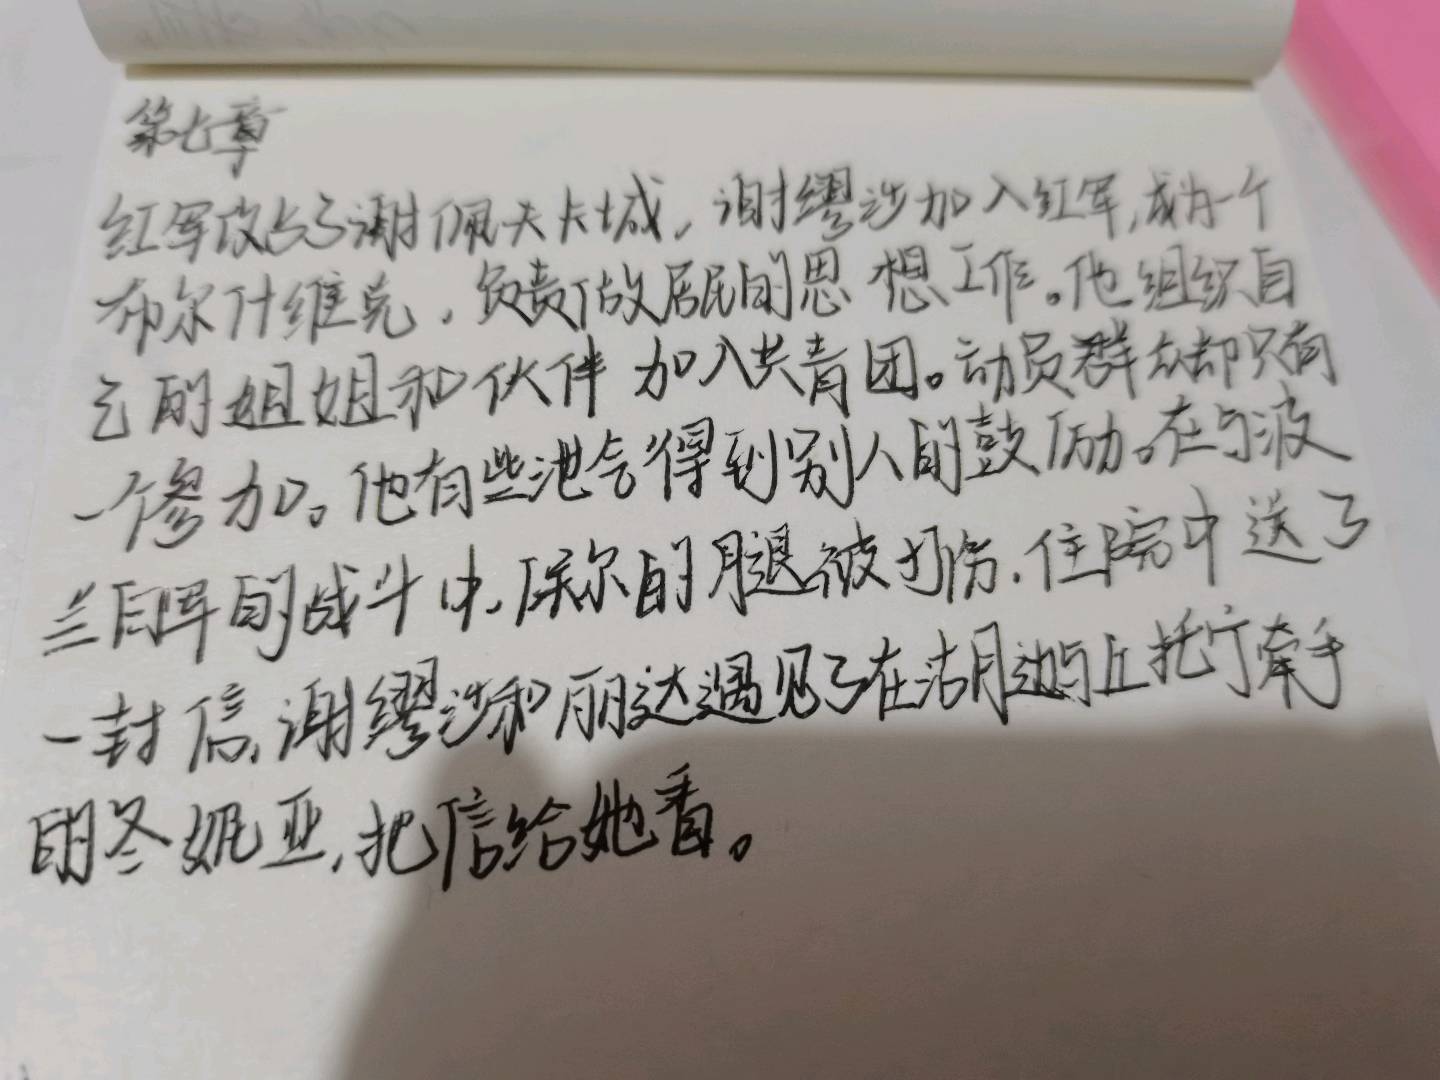 第七章
红军攻占了谢佩夫卡城，谢缪沙加入红军，成为一个
布尔什维克，负责做居民的思想工作。他组织自
己的姐姐和伙伴加入共青团。动员群众却只有
一个参加。他有些泄气得到别人的鼓励。在与波
兰白军的战斗中，保尔的腿被打伤，住院中送了
一封信，谢缪沙和丽达遇见了在沽月边与丘托宁牵手
的冬妮亚，把信给她看。